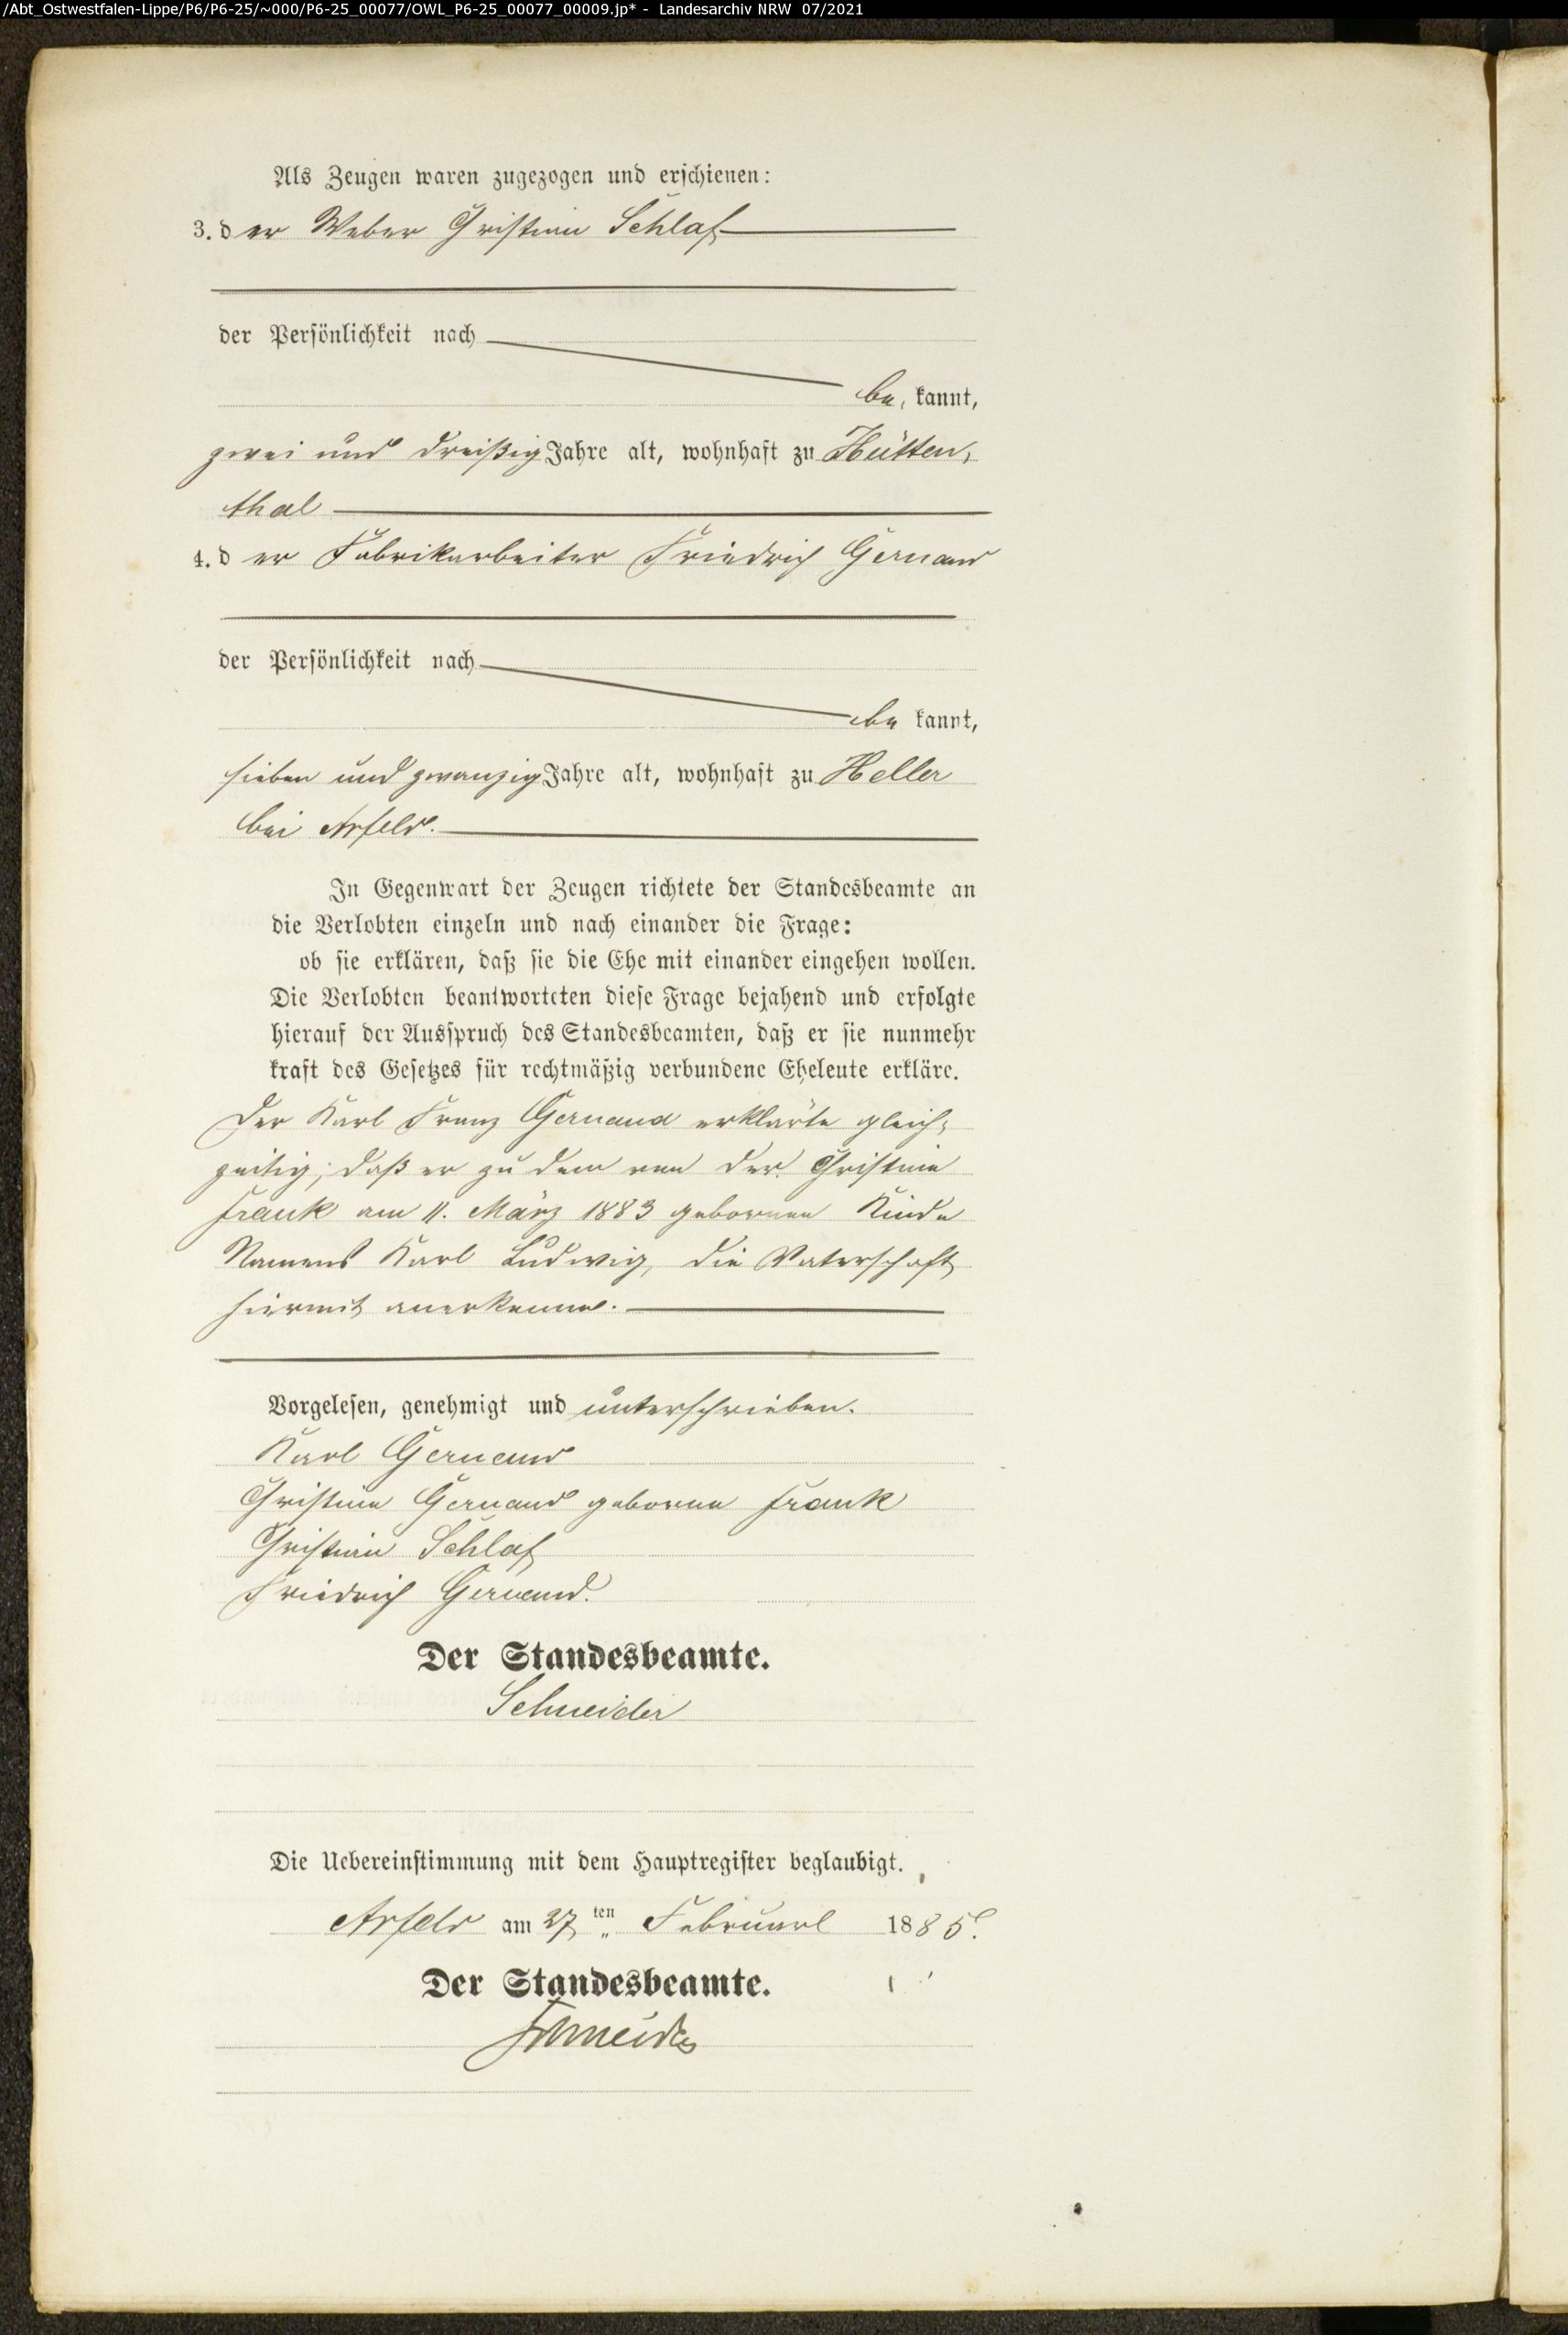 /Abt_Ostwestfalen-Lippe/P6/P6-25/~000/P6-25_00077/OWL_P6-25_00077_00009.jp* - Landesarchiv NRW 07/2021
Als Zeugen waren zugezogen und erschienen:
3. der Weber Christian Schlaf
der Persönlichkeit nach
be, kannt,
zwei und dreißig Jahre alt, wohnhaft zu Hütten,
thal
4. der Fabrikarbeiter Friedrich Gernand
der Persönlichkeit nach
be kannt,
sieben und zwanzig Jahre alt, wohnhaft zu Heller
bei Arfeld.
In Gegenwart der Zeugen richtete der Standesbeamte an
die Verlobten einzeln und nach einander die Frage:
ob sie erklären, daß sie die Ehe mit einander eingehen wollen.
Die Verlobten beantworteten diese Frage bejahend und erfolgte
hierauf der Ausspruch des Standesbeamten, daß er sie nunmehr
kraft des Gesetzes für rechtmäßig verbundene Eheleute erkläre.
Der Karl Franz Gernand erklärte gleich,
zeitig, daß er zu dem von der Christine
Frank am 11. März 1883 gebornen Kinde
Namens Karl Ludwig, die Vaterschaft
hiermit anerkenne.
Vorgelesen, genehmigt und unterschrieben.
Karl Gernand
Christine Gernand geborne Frank
Christian Schlaf
Friedrich Gernand.
Der Standesbeamte.
Schneider
Die Uebereinstimmung mit dem Hauptregister beglaubigt.
Arfeld am 27 ten Februarl 1885.
Der Standesbeamte.
Schneider